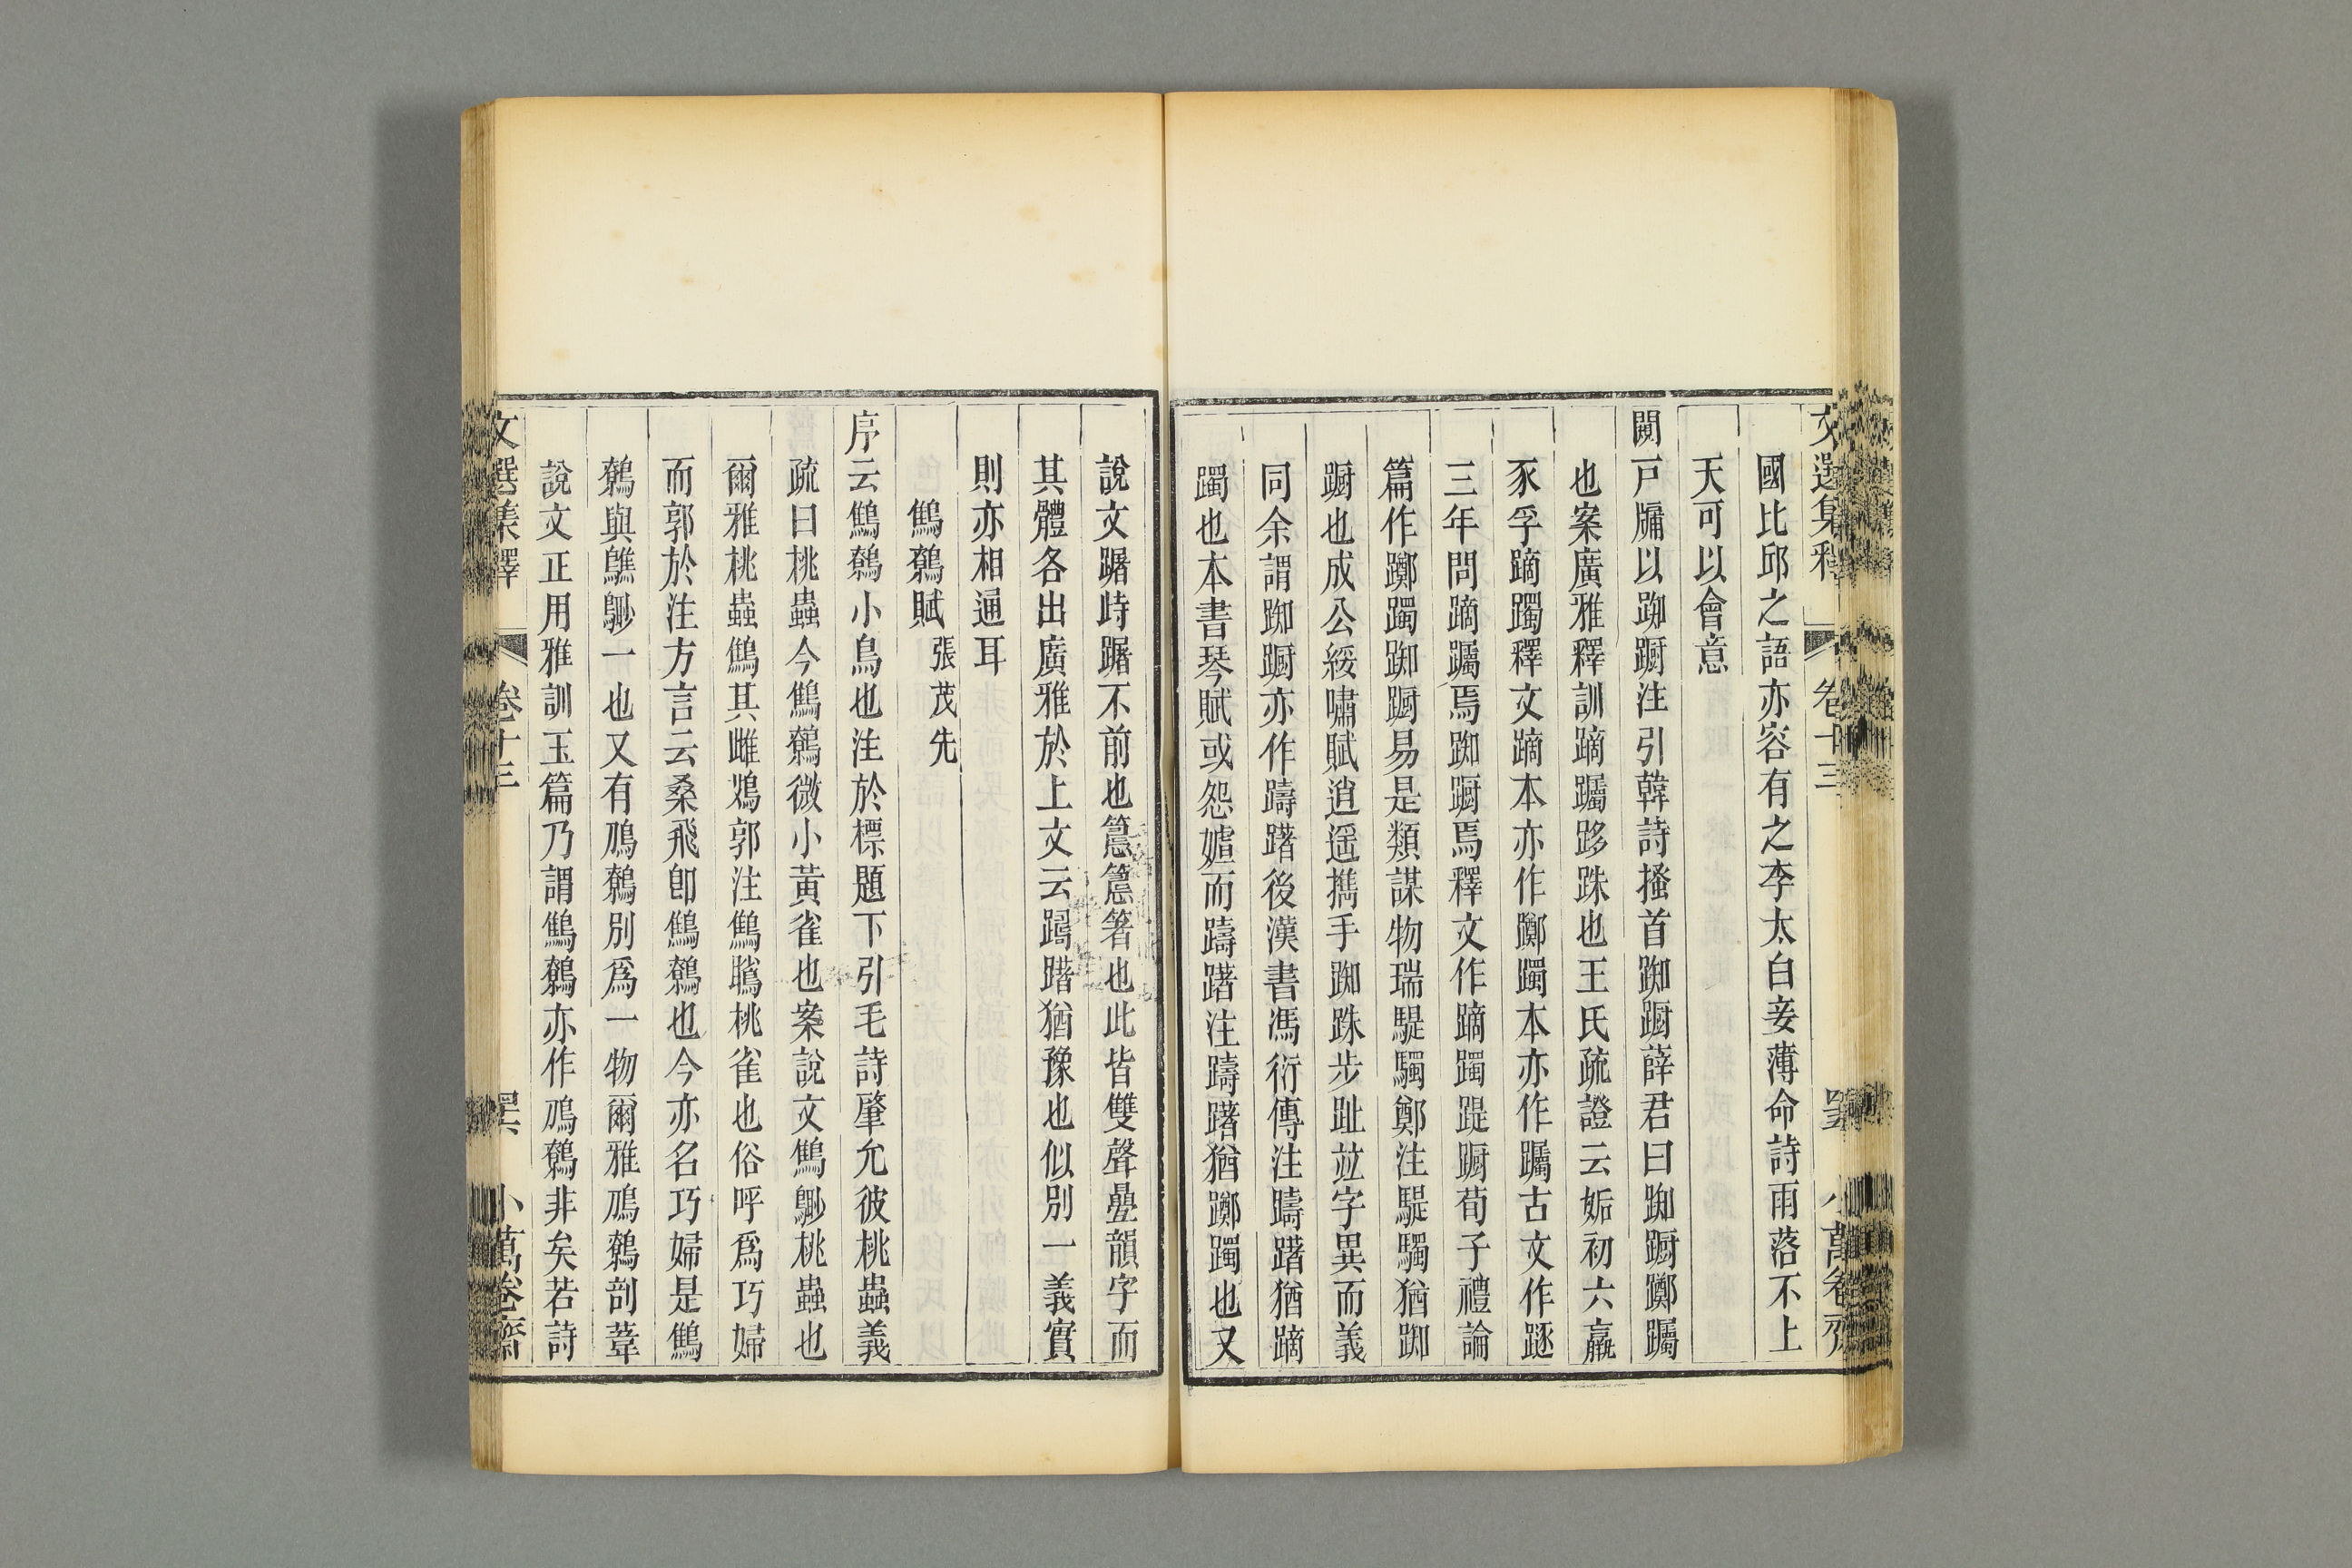 文選集釋 卷十三 小萬卷齋
國比邱之語亦容有之李太白妾薄命詩雨落不上
天可以會意
闚戸牖以踟蹰注引韓詩搔首踟蹰薛君曰踟蹰躑躅
也案廣雅釋訓蹢躅跢跦也王氏疏證云姤初六羸
豕孚蹢躅釋文蹢本亦作躑躅本亦作躅古文作𨅖
三年問蹢躅焉踟蹰焉釋文作蹢躅踶蹰荀子禮論
篇作躑躅踟蹰易是類謀物瑞騠驪鄭注騠驪猶踟
蹰也成公綏嘯賦逍遥擕手踟跦步趾竝字異而義
同余謂踟蹰亦作躊躇後漢書馮衍傳注躊躇猶蹢
躅也本書琴賦或怨嫭而躊躇注躊躇猶躑躅也又
說文躇峙躇不前也篹箸也此皆雙聲疊韻字而
其體各出廣雅於上文云躊躇猶豫也似別一義實
則亦相通耳
鷦鷯賦張茂先
序云鷦鷯小鳥也注於標題下引毛詩肇允彼桃蟲義
疏曰桃蟲今鷦鷯微小黃雀也案說文鷦䳂桃蟲也
爾雅桃蟲鷦其雌鴱郭注鷦䳂桃雀也俗呼爲巧婦
而郭於注方言云桑飛卽鷦鷯也今亦名巧婦是鷦
鷯與鷦䳂一也又有鳭鷯別爲一物爾雅鳭鷯剖葦
說文正用雅訓玉篇乃謂鷦鷯亦作鳭鷯非矣若詩
文選集釋 卷十三 小萬卷齋